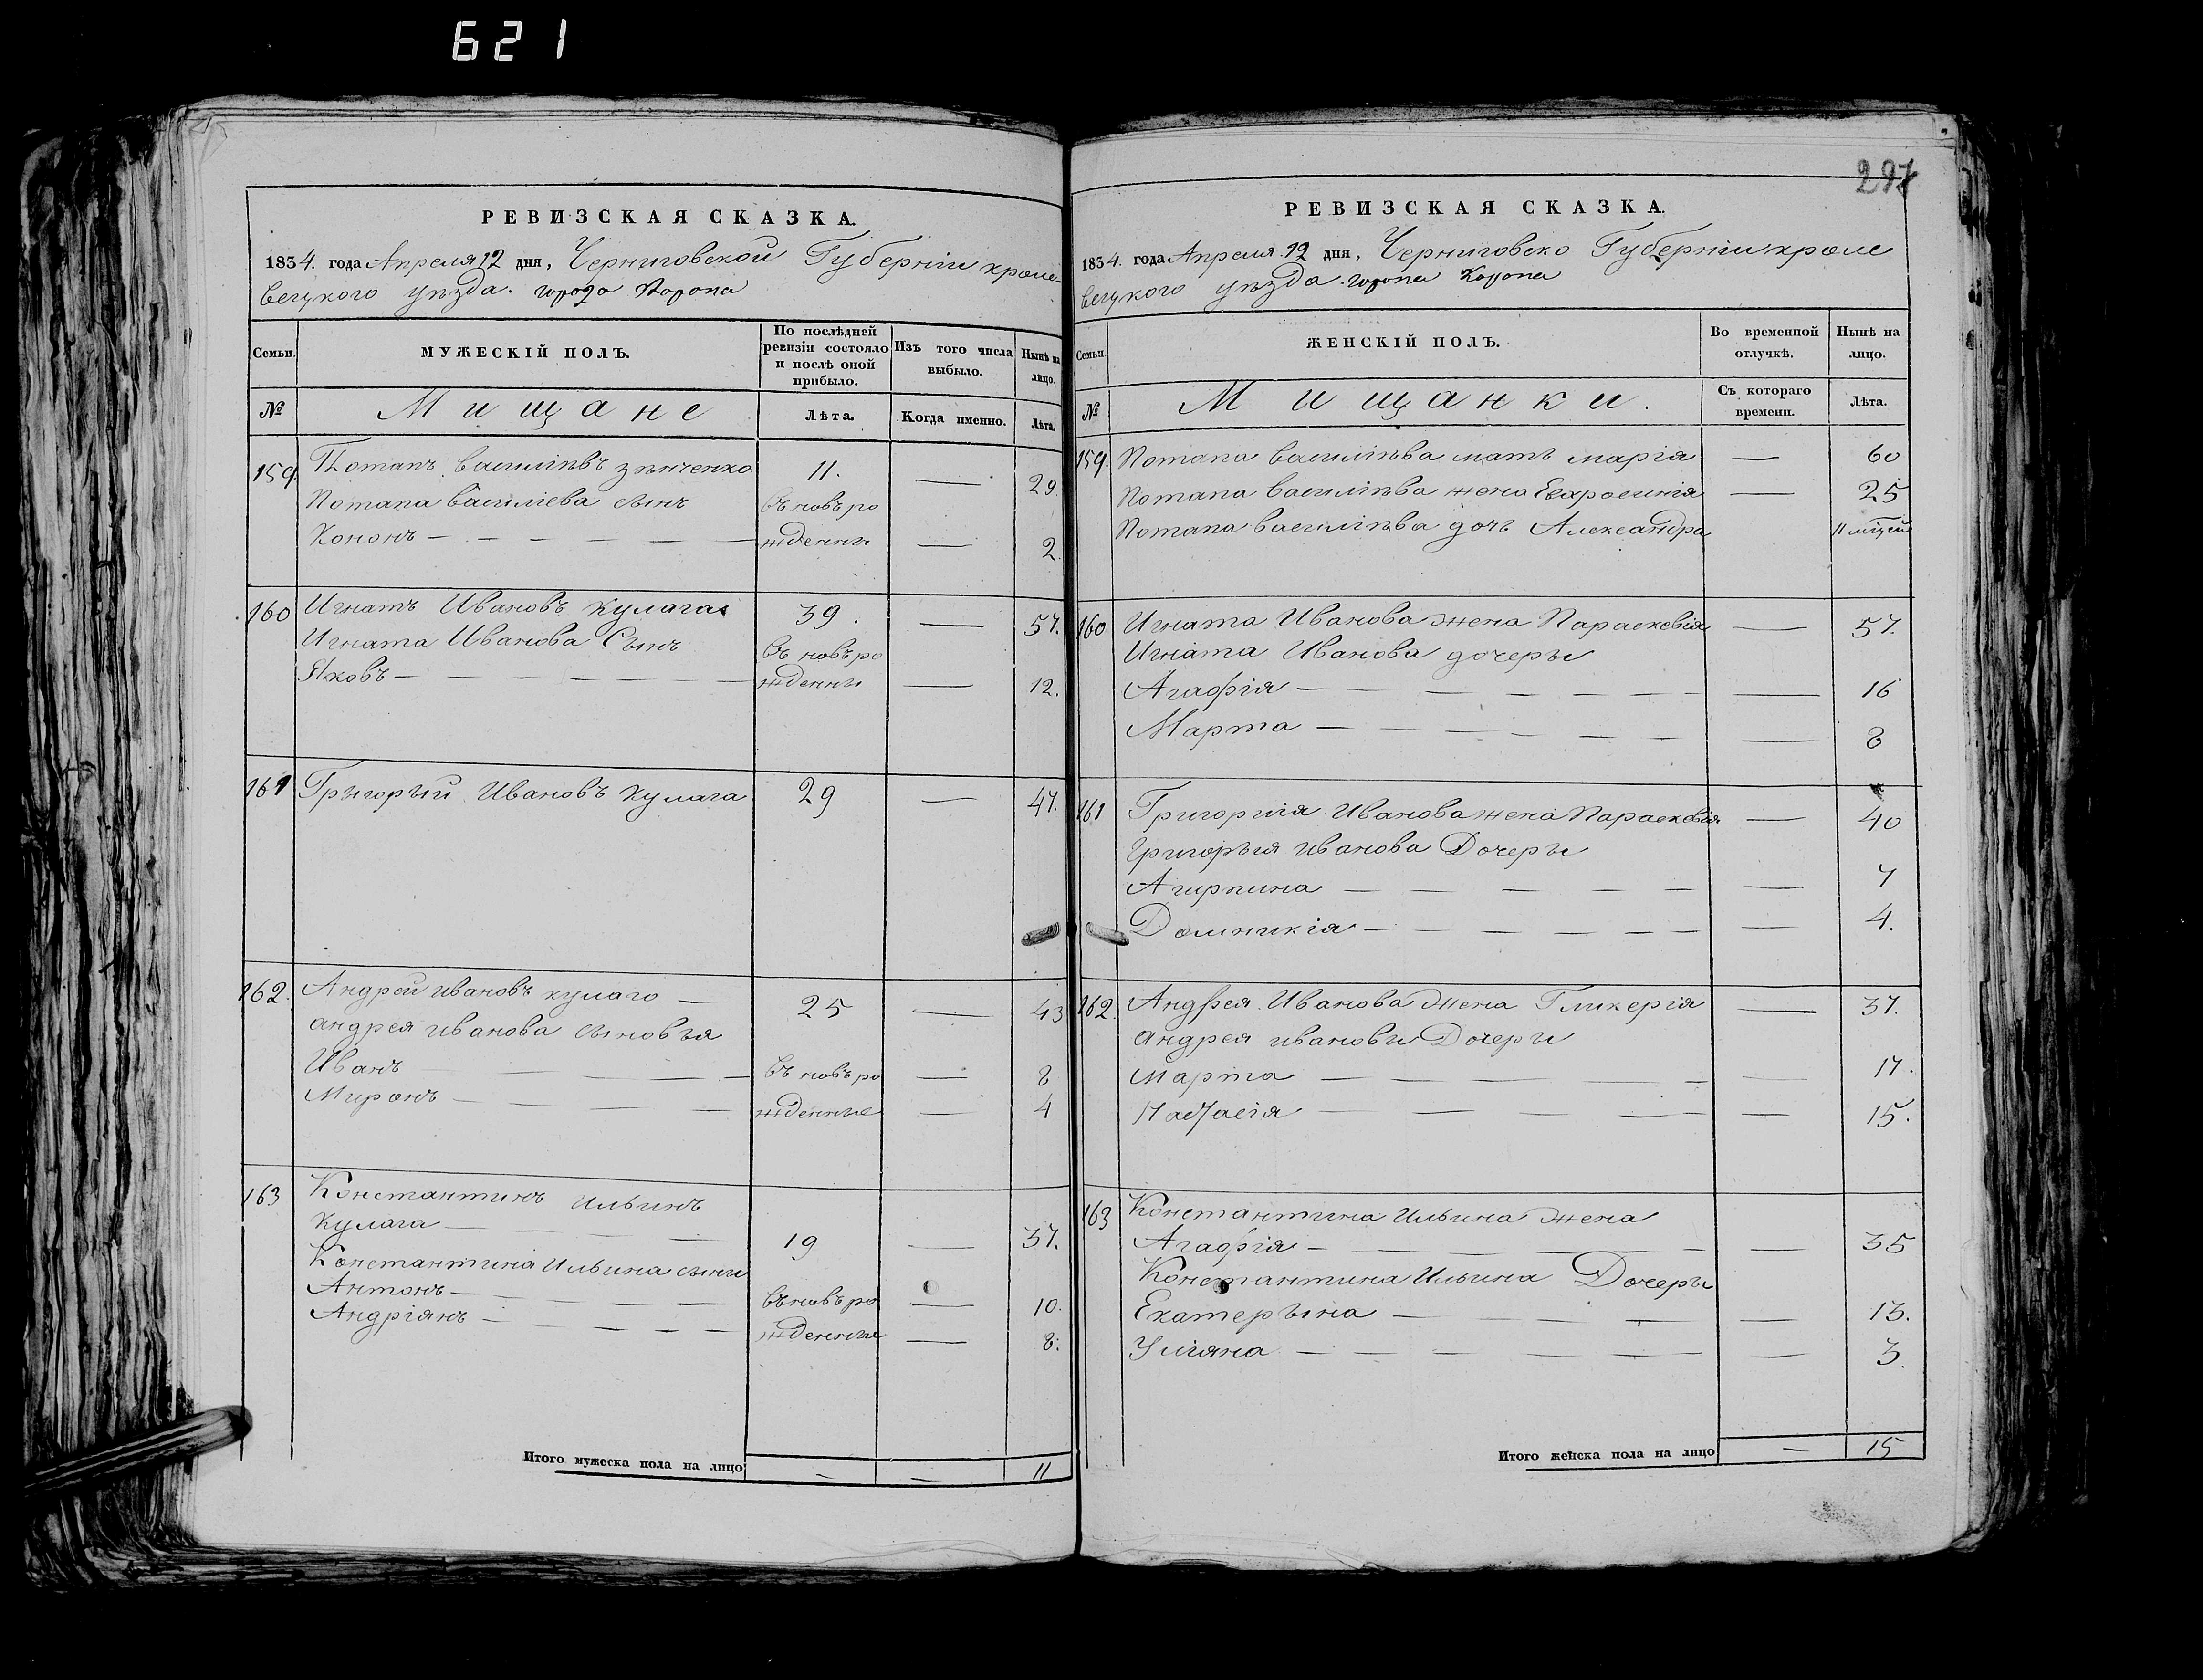 621
РЕВИЗСКАЯ СКАЗКА.
1834. года Апреля 12 дня, Черниговской Губерніи кроле-
вецкого уѣзда. города Коропа
Семьи. МУЖЕСКІЙ ПОЛЪ. По послѣдней ревизіи состояло и послѣ оной прибыло. Изъ того числа выбыло. Нынѣ на лицо.
№ Мищане Лѣта. Когда именно. Лѣта.
159. Потапъ Василіевъ зѣнченко 11. — 29.
Потапа василіева сынъ въ новъ ро
Кононъ — — — — — жденны — 2.
160 Игнатъ Ивановъ Кулага 39. — 57.
Игната Иванова Сынъ въ новъ ро
Яковъ — — — — — — жденны — 12.
161 Григорый Ивановъ Кулага 29 — 47.
162. Андрей ивановъ кулаго — 25 — 43
андрея иванова сыновья
Иванъ — — — въ новъ ро — 8
Миронъ — — — — жденные — 4
163 Константинъ ильинъ
Кулага — — — 19 — 37.
Константина Ильина сыны
Антонъ — — — — въ новъ ро — 10.
Андріянъ — — — — жденные — 8.
Итого мужеска пола на лицо — — 11
297
РЕВИЗСКАЯ СКАЗКА.
1834. года Апреля 12 дня, Черниговско Губерніи кроле
вецкого уѣзда. Коропа
Семьи. ЖЕНСКІЙ ПОЛЪ. Во временной отлучкѣ. Нынѣ на лицо.
№ Мищанки. Съ котораго времени. Лѣта.
159. Потапа василіева мать марія — 60
Потапа василіева жена — 25
Потапа василіева дочъ Александра 11
160 Игната Иванова жена Параскевія — 57.
Игната Иванова дочеры
Агафія — — — — — — — 16
Марта — — — — — — 8
161 Григорія Иванова жена Параскевія — 40
григорыя иванова Дочеры
Агирпина — — — — — — 7
Домникія — — — — — — — 4.
162. Андрея Иванова Жена Гликерія — 37.
андрея ивановы Дочеры
Марта — — — — — — 17.
Настасія — — — — — 15.
163 Константина Ильина жена
Агафія — — — — — — — 35
Константина Ильина Дочеры
Екатерына — — — — — — 13.
Уліяна — — — — — — — 3.
Итого женска пола на лицо — 15